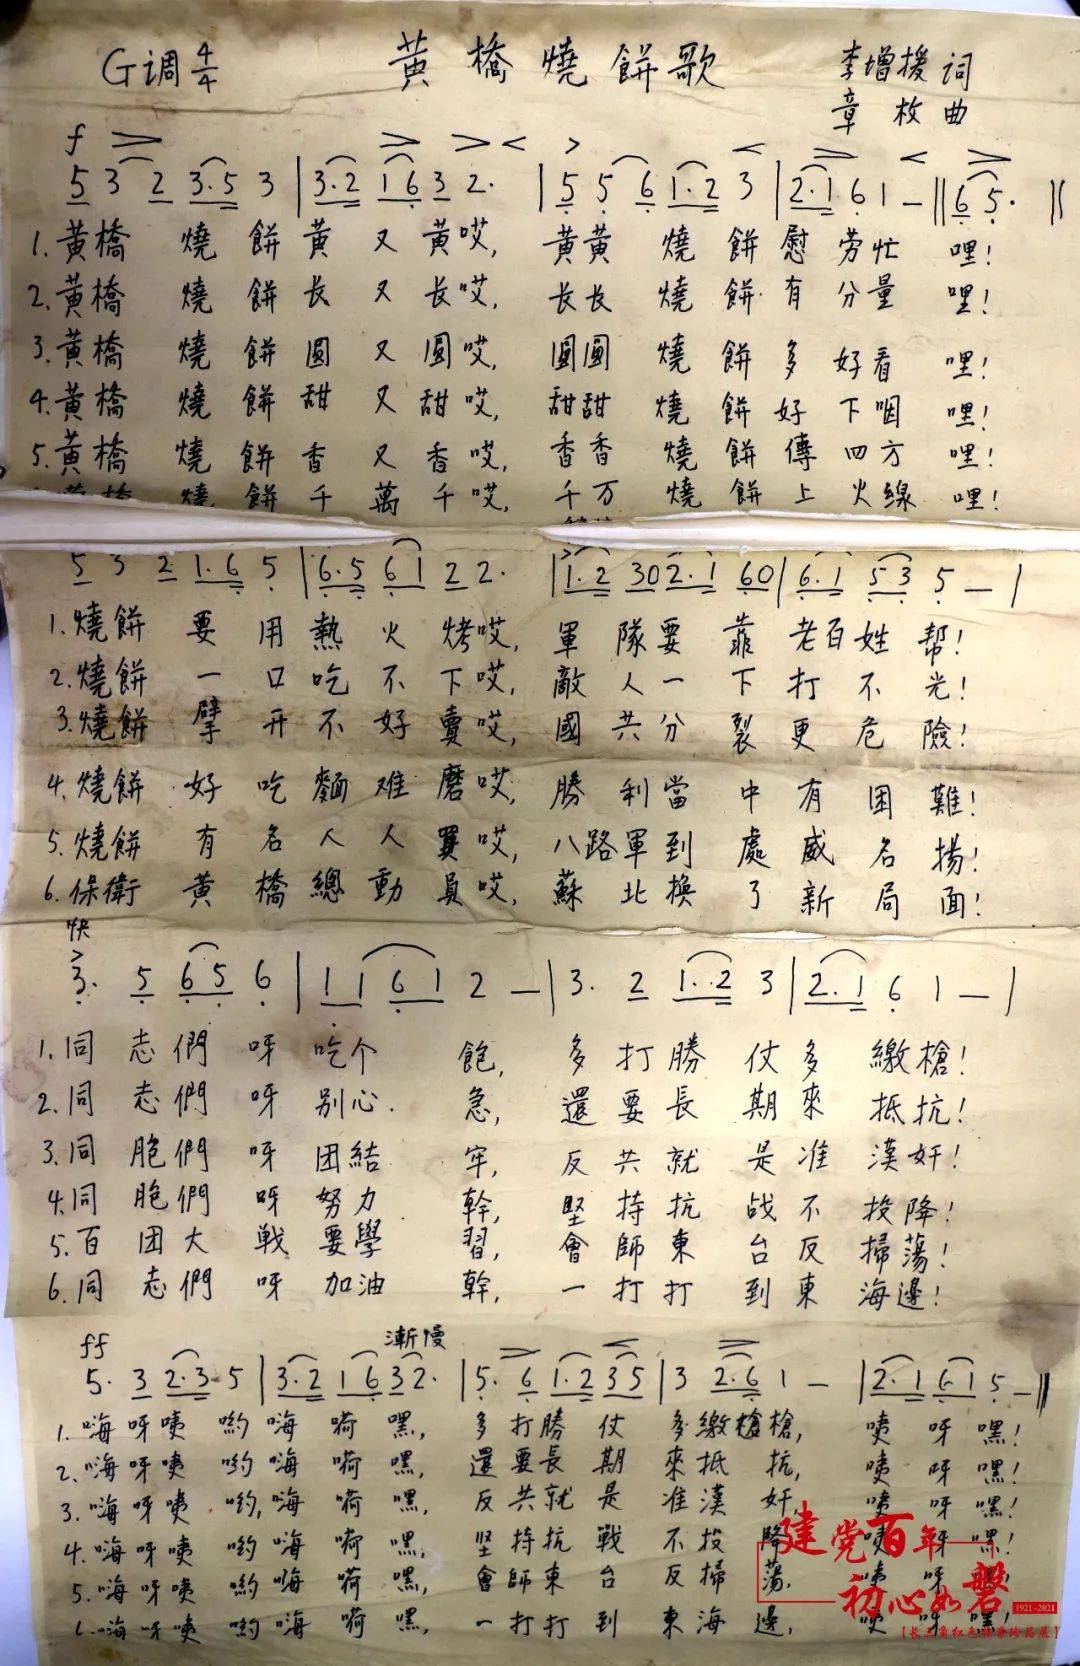 G调 4/4 黄橋燒餅歌 李增援 词
章枚 曲
f
5 3 2 3.5 3 | 3.2 1 6 3 2. | 5 5 6 1.2 3 | 2.1 6 1 – || 6 5. ||
1.黄橋 燒餅黄又黄哎, 黄黄燒餅慰劳忙哩!
2.黄橋 燒餅长又长哎, 长长燒餅有分量哩!
3.黄橋 燒餅圓又圓哎, 圓圓燒餅多好看哩!
4.黄橋 燒餅甜又甜哎, 甜甜燒餅好下咽哩!
5.黄橋 燒餅香又香哎, 香香燒餅傳四方哩!
黄橋 燒餅千萬千哎, 千万燒餅上火線哩!
5 3 2 1.6 5 | 6.5 6 1 2 2. | 1.2 30 2.1 60 | 6.1 5 3 5 – |
1.燒餅要用熱火烤哎, 軍隊要靠老百姓帮!
2.燒餅一口吃不下哎, 敵人一下打不光!
3.燒餅擘开不好賣哎, 國共分裂更危險!
4.燒餅好吃麵难磨哎, 勝利當中有困難!
5.燒餅有名人人買哎, 八路軍到處威名揚!
6.保衛黄橋總動員哎, 蘇北換了新局面!
快
3. 5 6 5 6 | 1 1 6 1 2 – | 3. 2 1.2 3 | 2.1 6 1 – |
1.同志們呀吃个飽, 多打勝仗多繳槍!
2.同志們呀别心急, 還要長期來抵抗!
3.同胞們呀团結牢, 反共就是准漢奸!
4.同胞們呀努力幹, 堅持抗战不投降!
5.百团大戰要學習, 會師東台反掃蕩!
6.同志們呀加油幹, 一打打到東海邊!
ff 漸慢
5. 3 2.3 5 | 3.2 1 6 3 2. | 5. 6 1.2 3 5 | 3 2.6 1 – | 2.1 6 1 5 – ||
1.嗨呀咦喲嗨嗬嘿, 多打勝仗多繳槍槍, 咦呀嘿!
2.嗨呀咦哟嗨嗬嘿, 還要長期來抵抗, 咦呀嘿!
3.嗨呀咦哟,嗨嗬嘿, 反共就是准漢奸, 咦呀嘿!
4.嗨呀咦哟嗨嗬嘿, 堅持抗戰不投降, 咦呀嘿!
5.嗨呀咦喲嗨嗬嘿, 會師東台反掃蕩, 咦呀嘿!
6.嗨呀咦哟嗨嗬嘿, 一打打到東海邊, 咦呀嘿!
建党百年
初心如磐 1921-2021